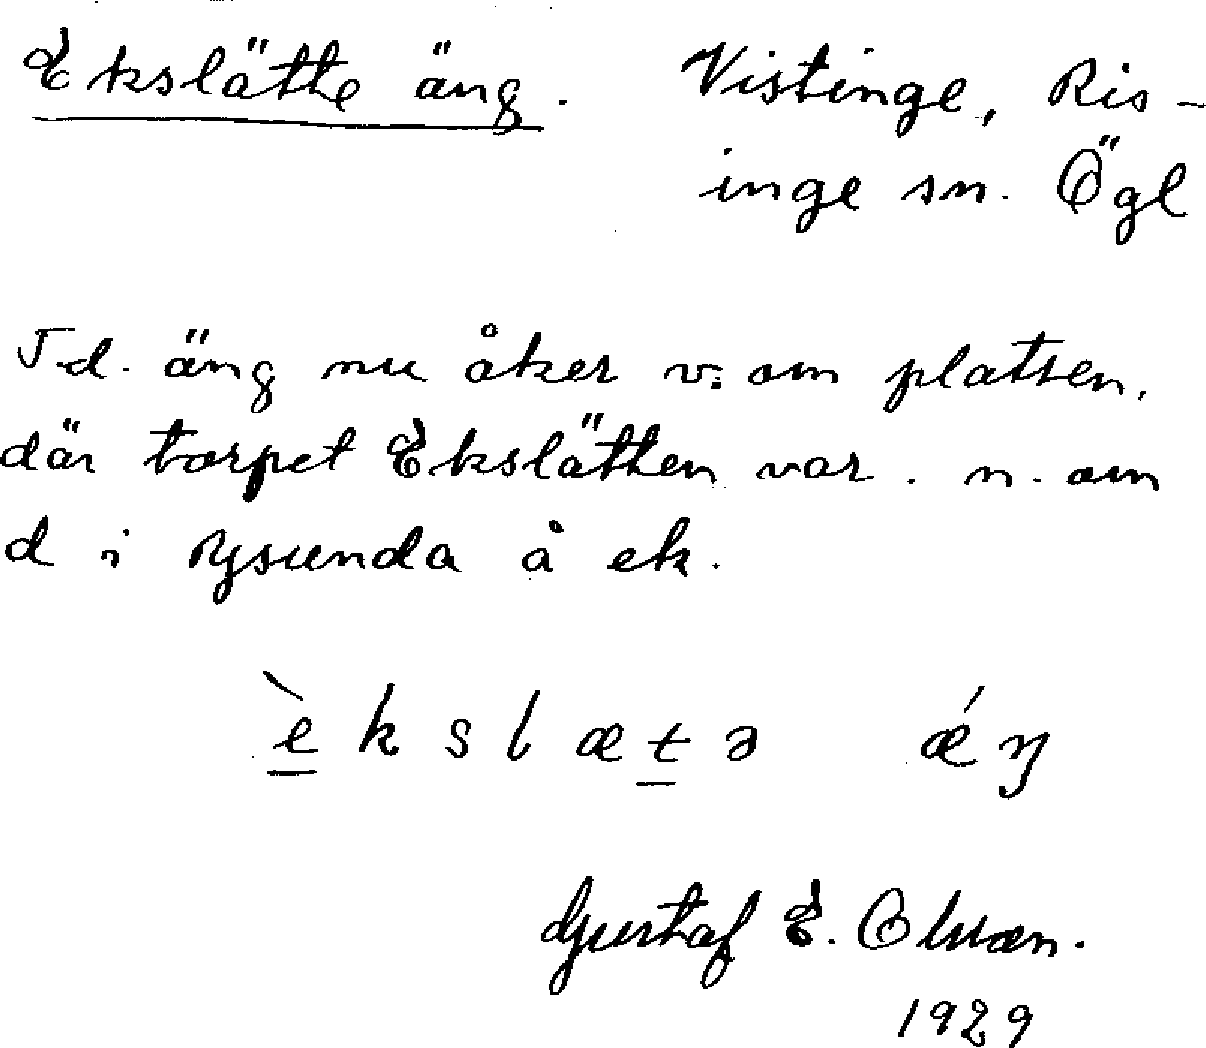 Ekslätte äng. Vistinge, Ris-
inge sn. Ögl
F.d. äng nu åker v. om platsen,
där torpet Ekslätten var. n. om
d i Rysunda å ek.
è̠kslæt̠ə ǽŋ
Gustaf E. Olsson.
1929